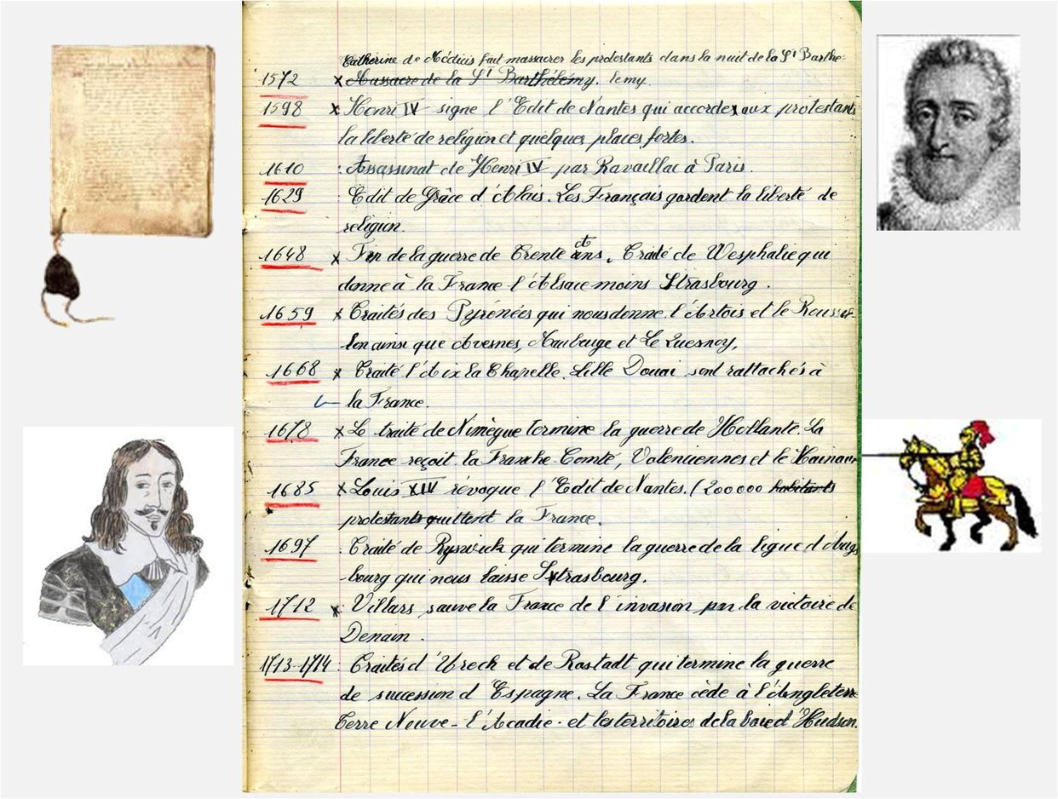 Catherine de Médicis fait massacrer les protestants dans la nuit de la St Barthe-
1572 x Massacre de la St Barthélémy. lemy.
1598 x Henri IV signe l'Edit de Nantes qui accorde aux protestants
la liberté de religion et quelques places fortes.
1610 : Assassinat de Henri IV par Ravaillac à Paris.
1629 : Edit de Grâce d'Alais. Les Français gardent la liberté de
religion.
1648 x Fin de la guerre de Trente ans. Traité de Wesphalie qui
donne à la France l'Alsace moins Strasbourg.
1659 x Traités des Pyrénées qui nous donne l'Artois et le Roussil-
lon ainsi que Avesnes, Maubeuge et Le Quesnoy,
1668 x Traité d'Aix la Chapelle. Lille Douai sont rattachés à
la France.
1678 x Le traité de Nimègue termine la guerre de Hollante. La
France reçoit la Franche Comté, Valenciennes et le Hainaut
1685 x Louis XIV révoque l'Edit de Nantes. (200000 habitants
protestants quittent la France.
1697 : Traité de Ryswick qui termine la guerre de la ligue d'Augs
bourg qui nous laisse Strasbourg.
1712 x Villars sauve la France de l'invasion par la victoire de
Denain.
1713-1714 : Traités d'Utrech et de Rastadt qui termine la guerre
de succession d'Espagne. La France cède à l'Angleterre
Terre Neuve - l'Acadie - et les territoires de la baie d'Hudson.